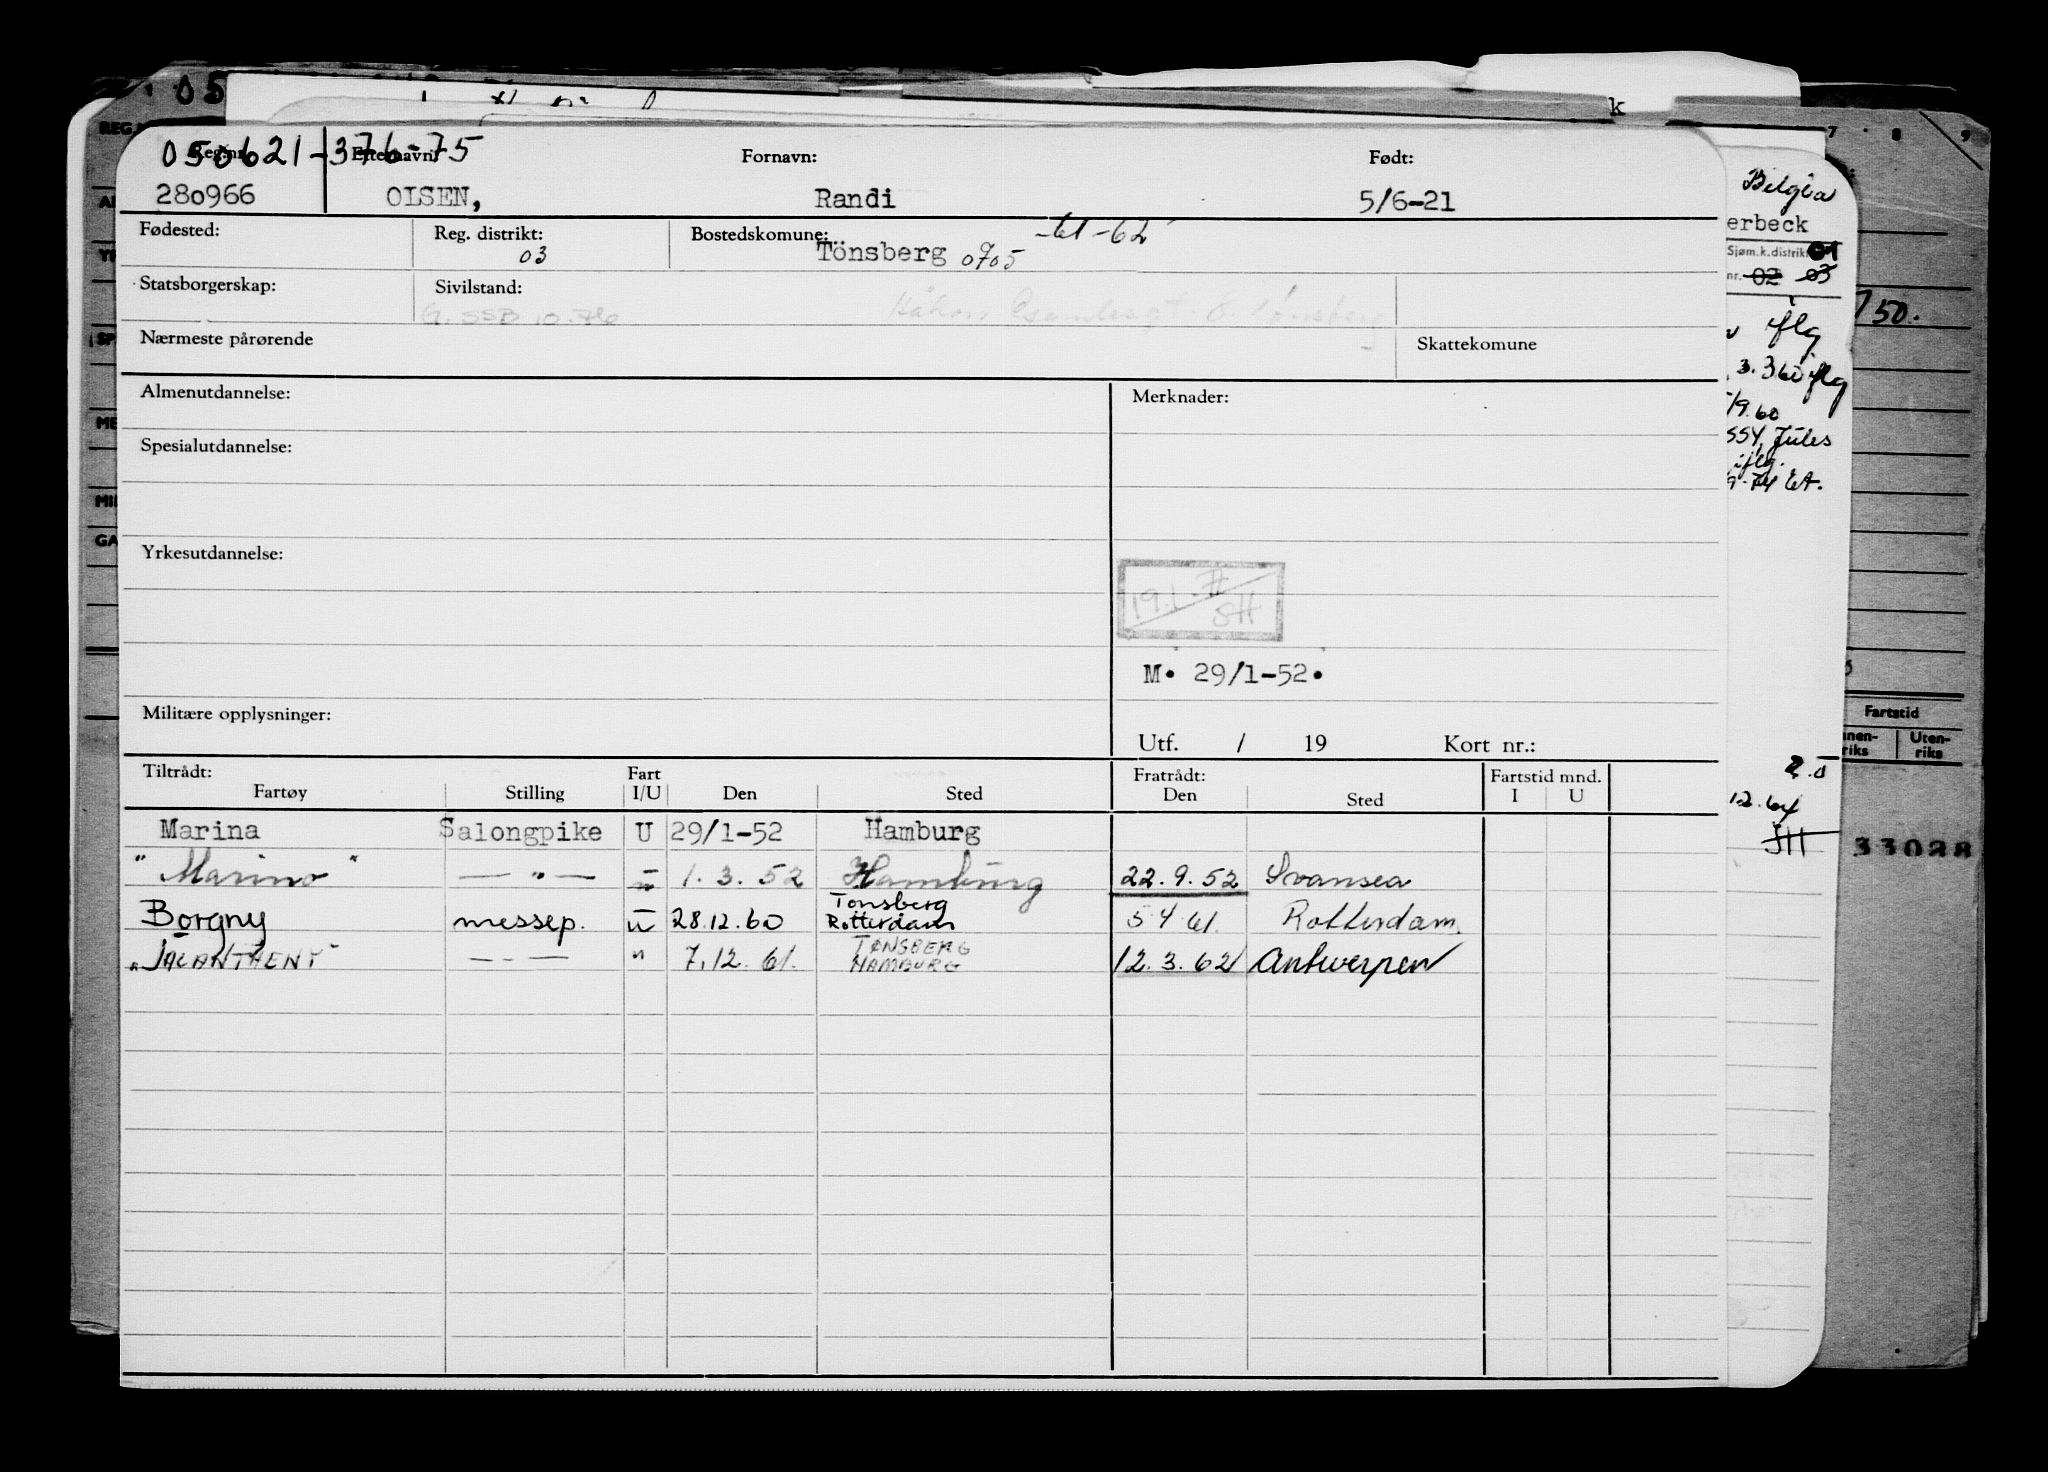 050621-376-75
Reg.nr. Efternavn: Fornavn: Født:
280966 OLSEN, Randi 5/6-21
Fødested: Reg. distrikt: Bostedskomune: -61-62
03 Tönsberg 0705
Statsborgerskap: Sivilstand:
G. SSB 10.
Nærmeste pårørende Skattekomune
Almenutdannelse: Merknader:
Spesialutdannelse:
Yrkesutdannelse:
19.1
SH
M. 29/1-52.
Militære opplysninger:
Utf. / 19 Kort nr.:
Tiltrådt: Fart Fratrådt: Fartstid mnd.
Fartøy Stilling I/U Den Sted Den Sted I U
Marina Salongpike U 29/1-52 Hamburg
"Marino" — " — " 1. 3. 52 Hamburg 22. 9. 52 Svansea
Tønsberg
Borgny messep. U 28.12.60 Rotterdam 5 4 61. Rotterdam.
TØNSBERG
"JALANTHENY" — - — " 7.12. 61. HAMBURG 12. 3. 62 Antwerpen
05
k
7 8 9
REG.
SP
ME
MI
GA
Belgia
erbeck
Sjøm.k.distrikt
nr. 02 03
/50.
flg
3.
/9.60
554, Jules
iflg.
Fartstid
Innen-riks Uten-riks
12.64
SH
33028